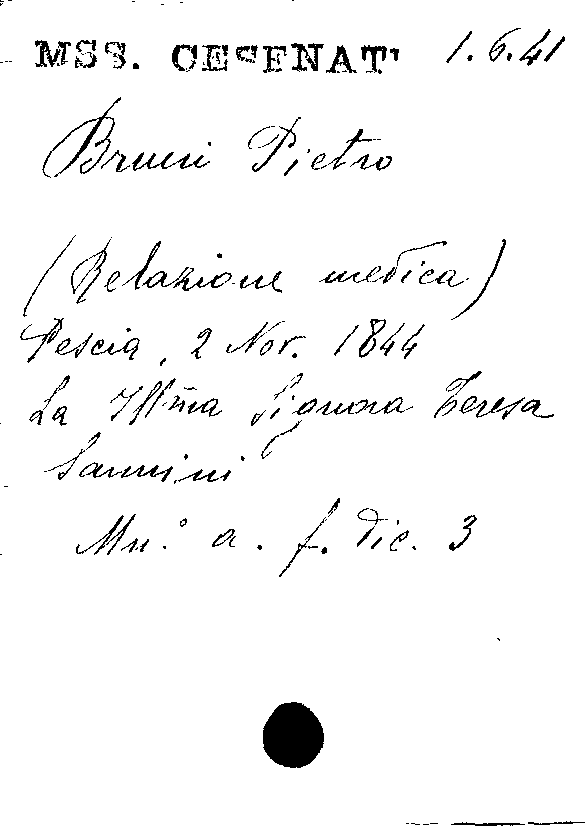 MSS. CESENATI 1.6.41
Bruni Pietro
(Relazione medica)
Pescia, 2 Nov. 1844
La Ill̃ma Signora Teresa
Sannini
Mn.° a. f. dic. 3